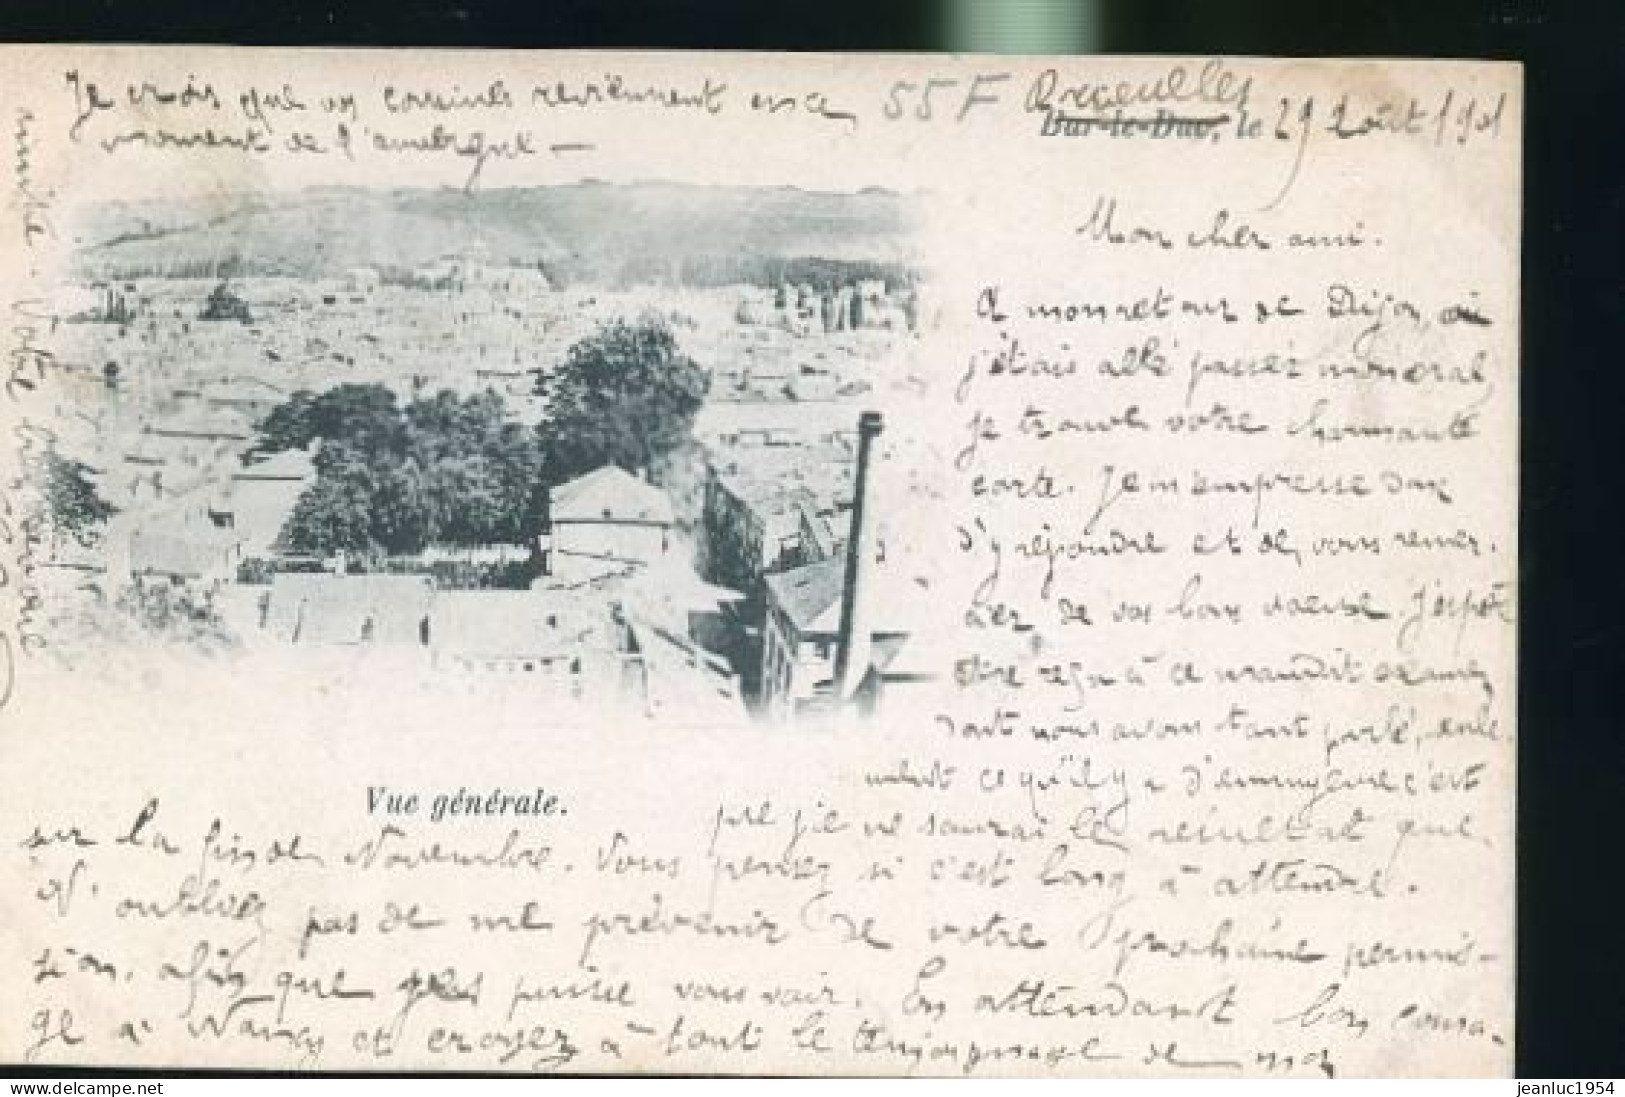 Je crois que vos cousines reviennent en ce
moment de l'auvergne —
55 F
Bar-le-Duc, le 29 Août 1901
Mon cher ami.
A mon retour de Dijon, où
j'étais allé passer mon oral,
je trouve votre charmante
carte. Je m'empresse donc
d'y répondre et de vous remer.
cier de vos bons vœux. J'espère
être reçu à ce maudit examen
dont nous avons tant parlé, seule
ment ce qu'il y a d'ennuyeux c'est
que je ne saurai le résultat que
sur la fin de Novembre. Vous pensez si c'est long à attendre.
N'oubliez pas de me prévenir de votre prochaine permis-
sion, afin que je puisse vous voir. En attendant bon coura-
ge à Nancy et croyez à tout le de mon
amitié. Votre
Vue générale.
jeanluc1954